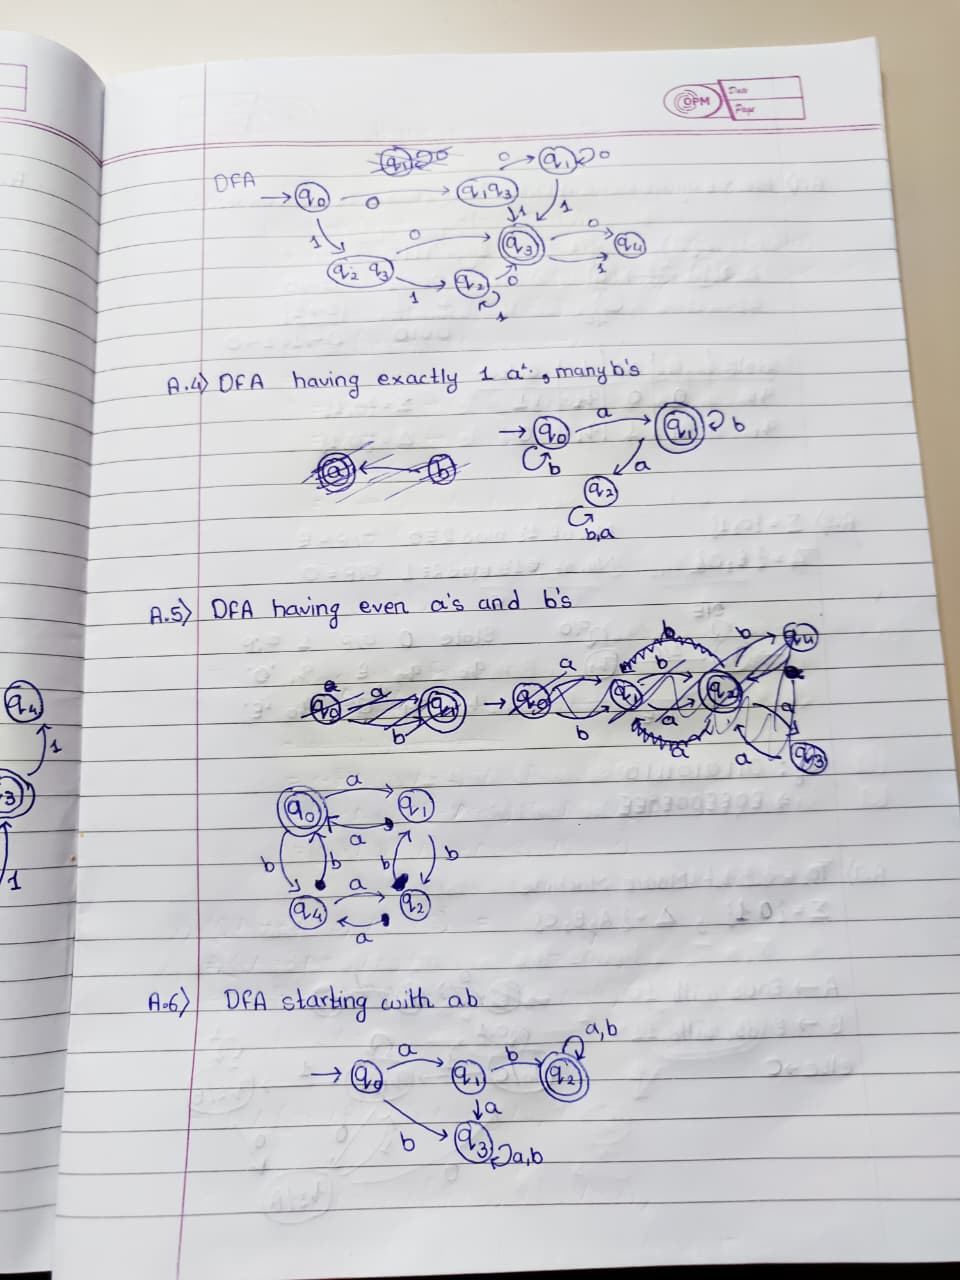 OPM
Date
Page
DFA
q₁ 0
q₀ 0 q₁q₃ 0 q₁ 0
1 1 1
q₂ q₃ 0 q₃ 0 q₄
1 q₂ 0 1
1
A.4) DFA having exactly 1 a, many b's
a b
q₀ a q₁ b
b a
q₂
b,a
A.5) DFA having even a's and b's
b b q₄
q₀ a q₁ b q₀ a q₁ b q₂ a
b a a a q₃
q₀ a q₁
a
b b b b
q₄ a q₂
a
A.6) DFA starting with ab
a,b
q₀ a q₁ b q₂
b a
q₃ a,b
q₄
1
3
1